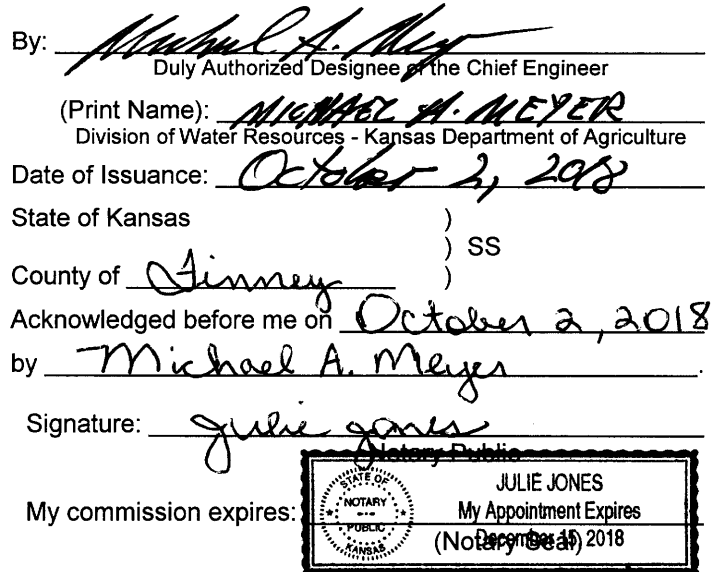 By: Michael A. Meyer
Duly Authorized Designee of the Chief Engineer
(Print Name): MICHAEL A. MEYER
Division of Water Resources - Kansas Department of Agriculture
Date of Issuance: October 2, 2018
State of Kansas )
) SS
County of Finney )
Acknowledged before me on October 2, 2018
by Michael A. Meyer.
Signature: Julie Jones
Notary Public
STATE OF KANSAS
NOTARY PUBLIC
JULIE JONES
My Appointment Expires
December 15, 2018
My commission expires:
(Notary Seal)